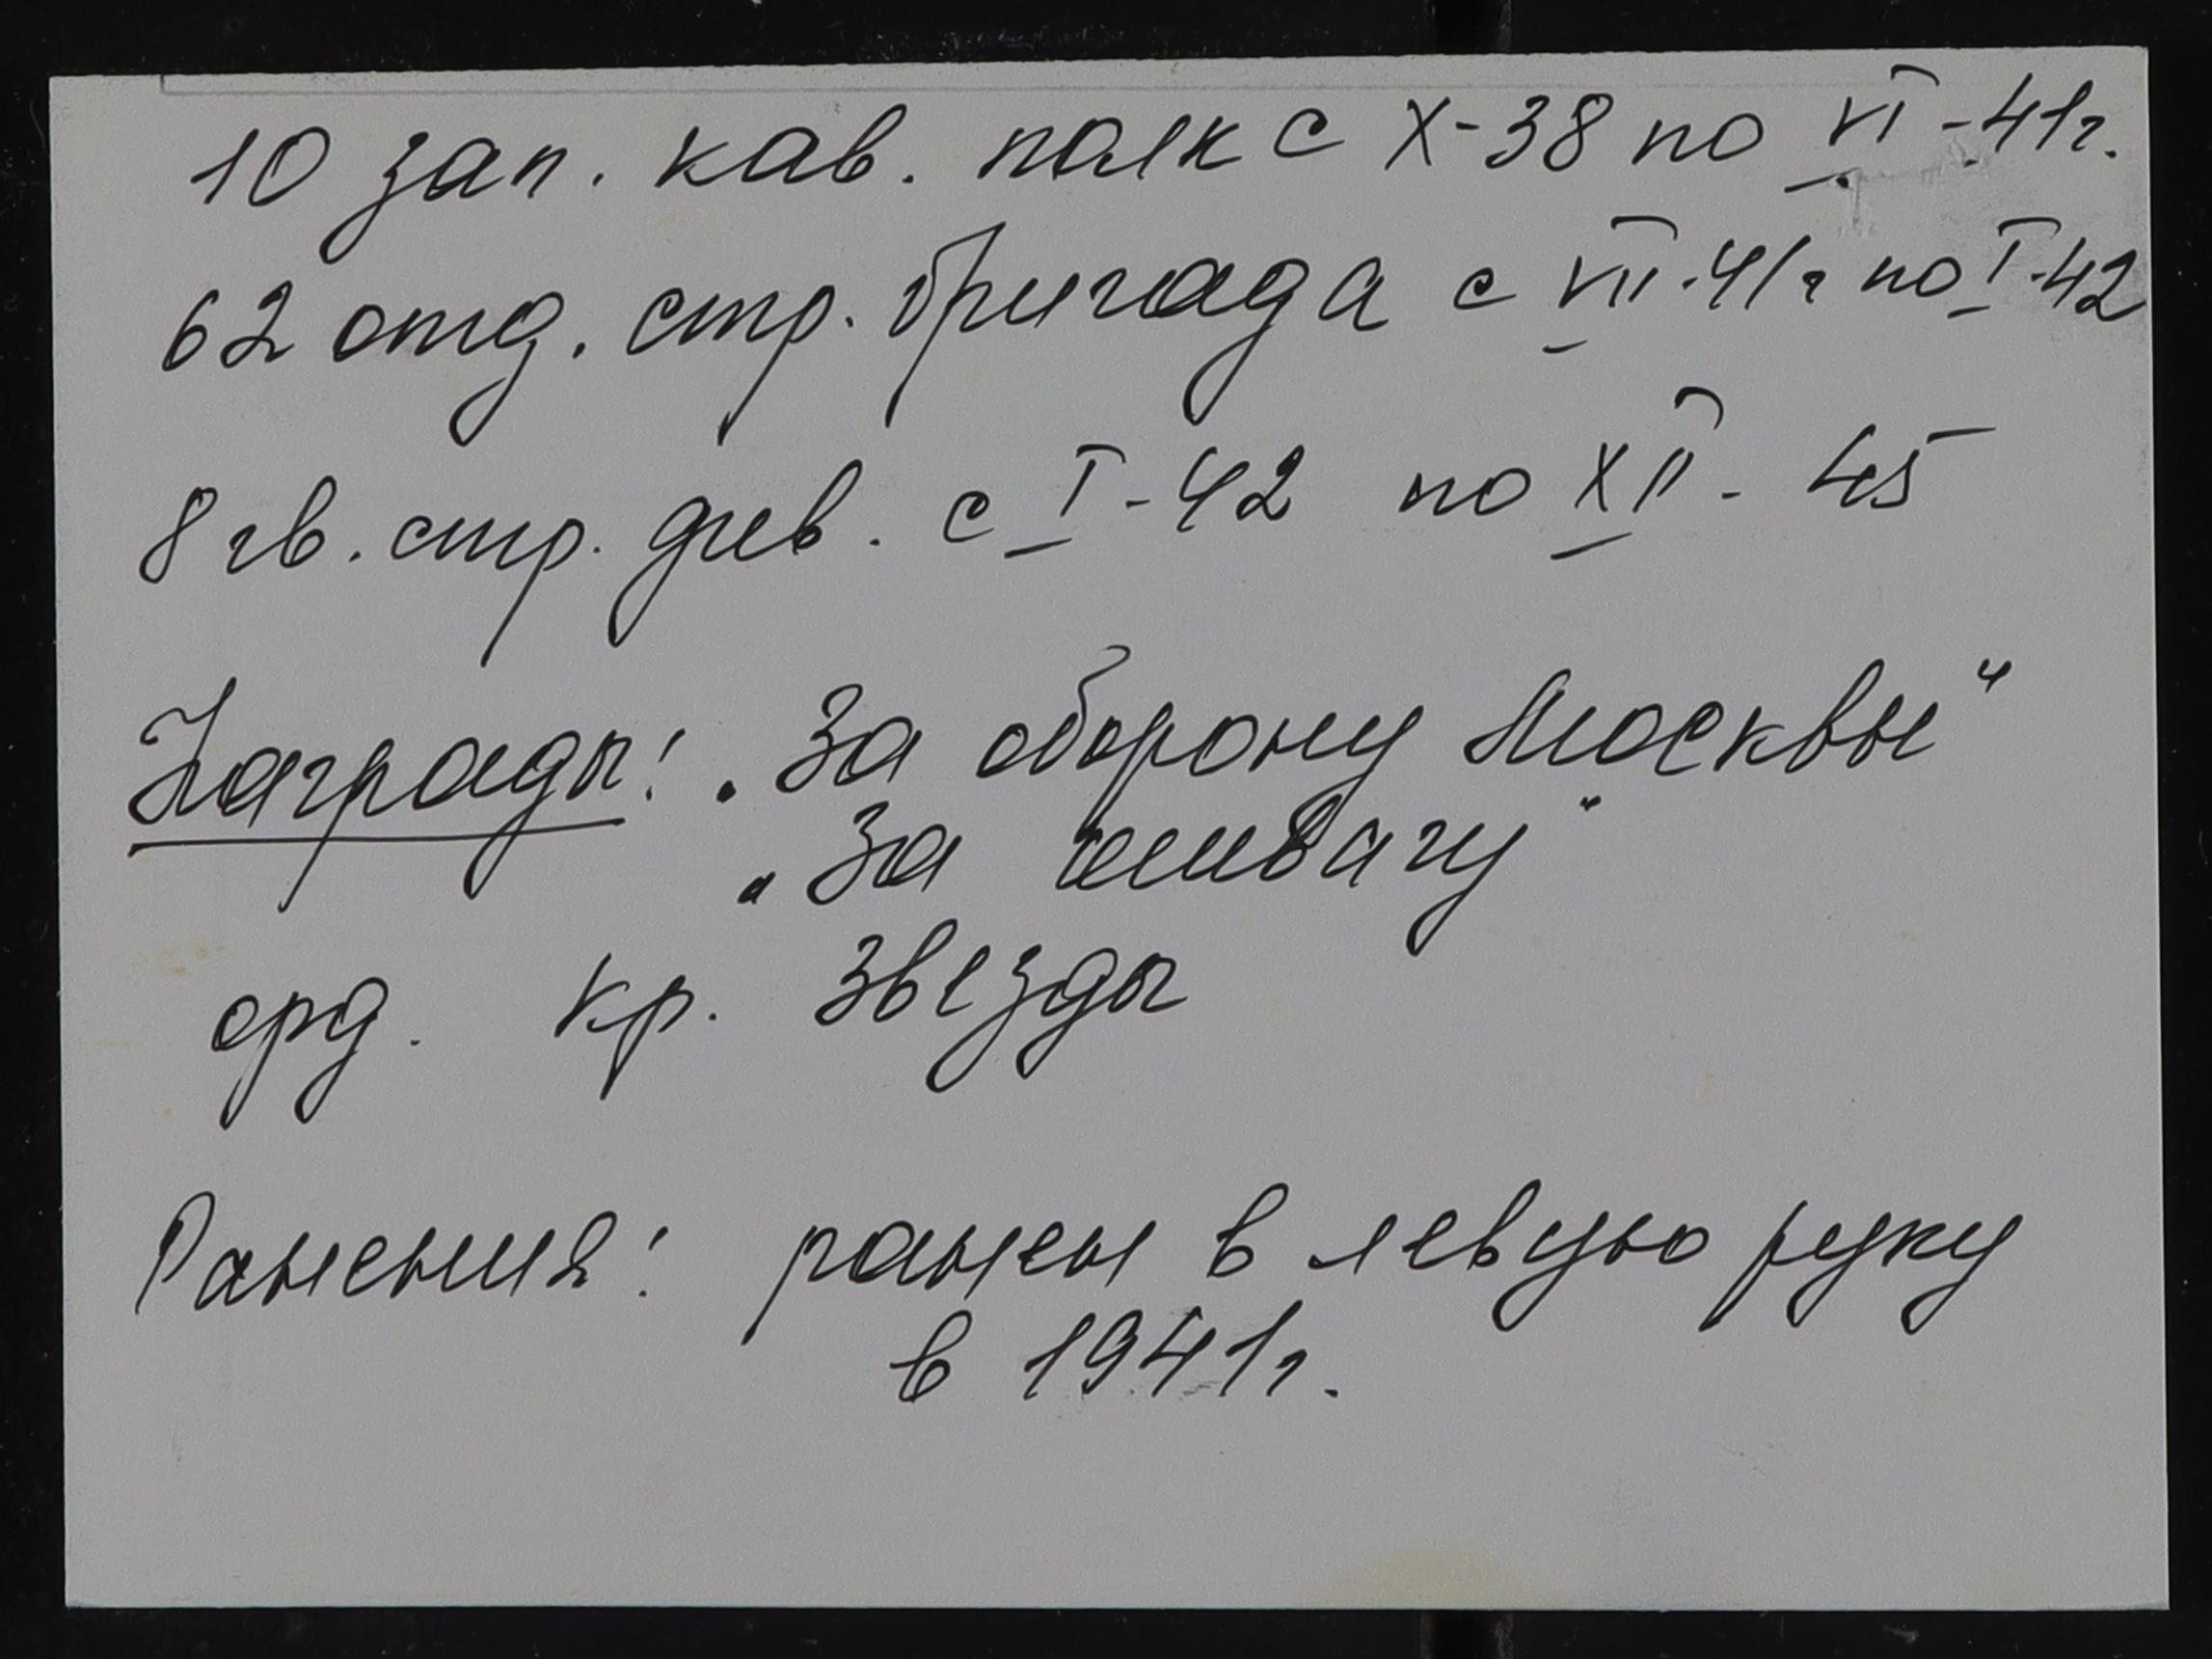 10 зап. кав. полк с X-38 по VI-41г.
62 отд. стр. бригада с VII-41г по I-42
8 гв. стр. див. с I-42 по XII-45
Награды: „За оборону Москвы"
„За отвагу"
орд. Кр. Звезды
Ранения: ранен в левую руку
в 1941г.